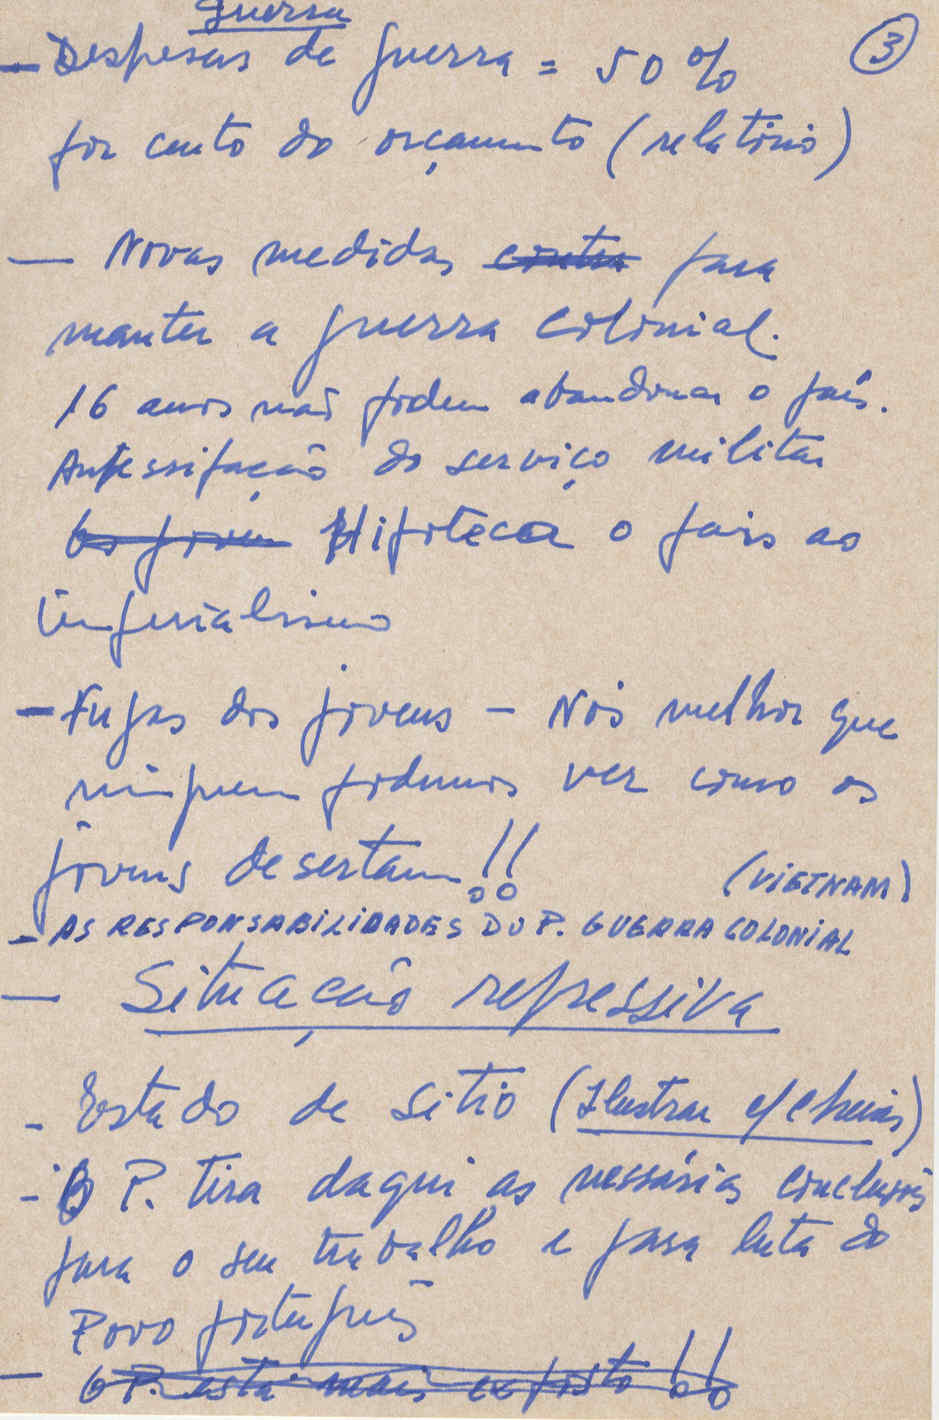 Guerra
3
- Despesas de guerra = 50%
por cento do orçamento (relatório)
- Novas medidas contra para
manter a guerra colonial.
16 anos não podem abandonar o país.
do serviço militar
Os jovens Hipoteca o país ao
imperialismo
- Fugas dos jovens - Nós melhor que
ninguem podemos ver como os
jovens desertam!!
(VIETNAM)
- AS RESPONSABILIDADES DO P. GUERRA COLONIAL
- Situação repressiva
- Estado de sitio (Ilustrar c/ cheias)
- O P. tira daqui as nessárias conclusões
para o seu trabalho e para luta do
Povo português
- O P. está mais exposto!!